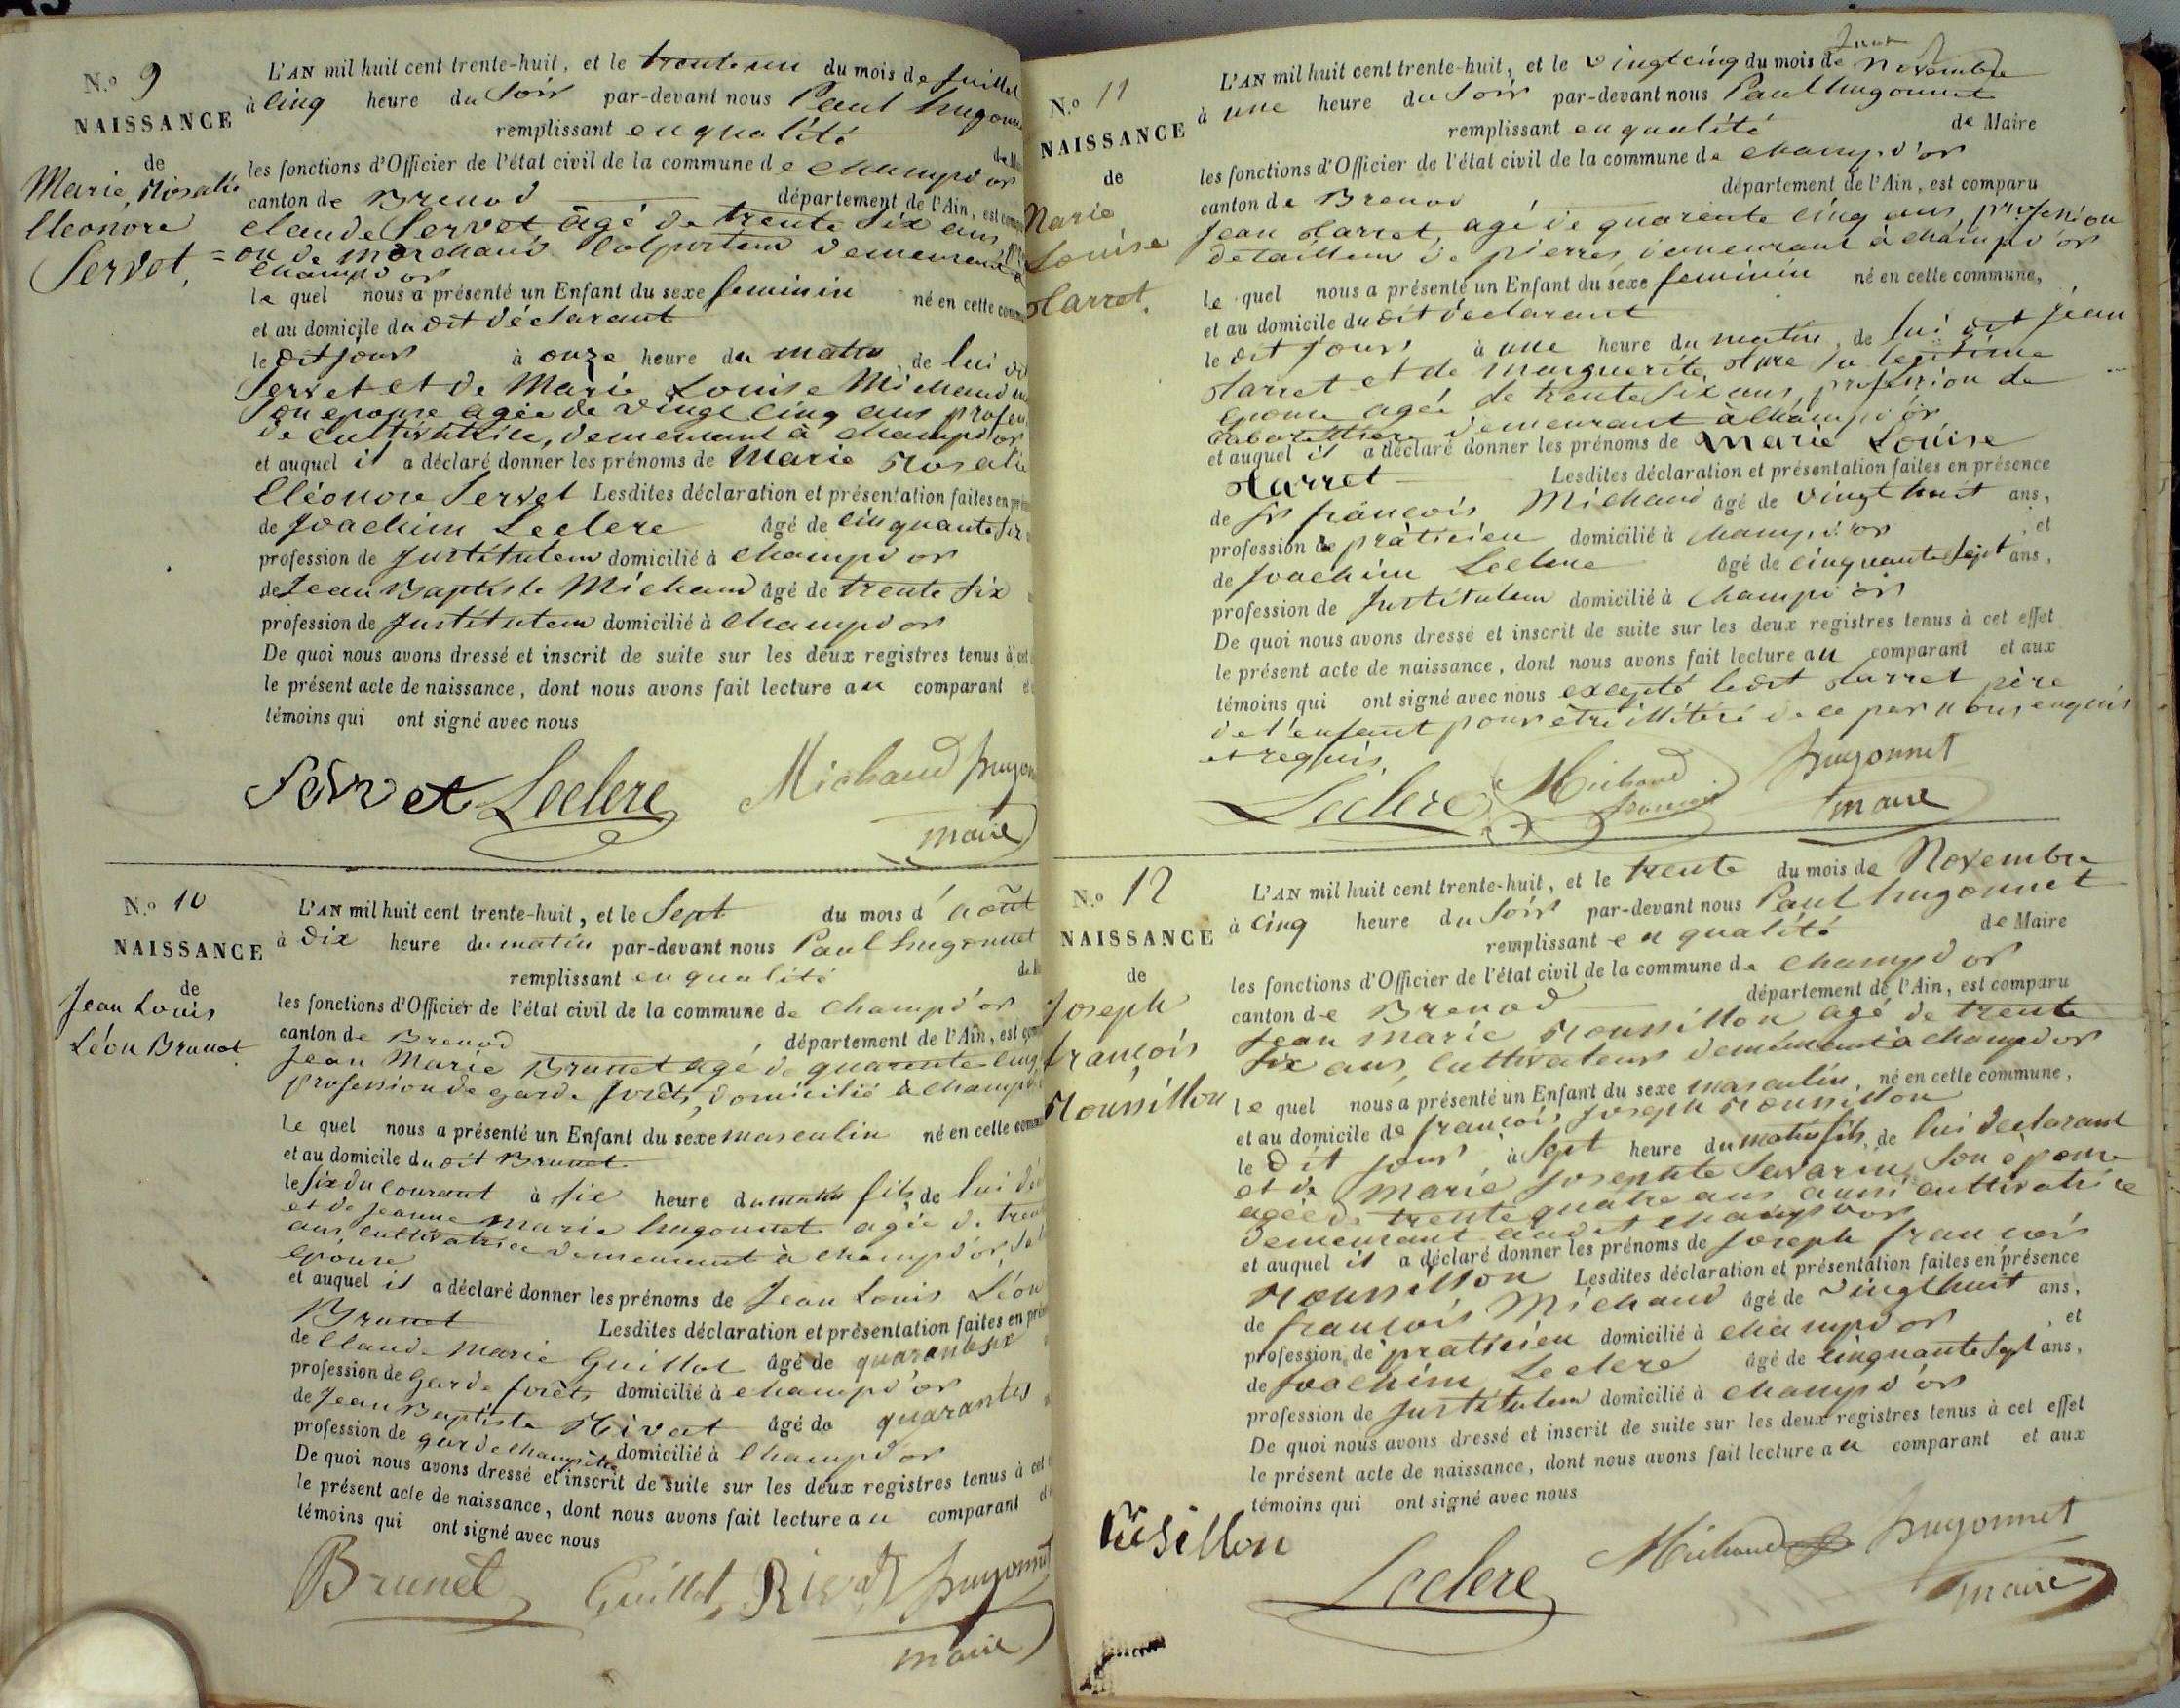 N.o 9
NAISSANCE
de
Marie, Rosalie
Eleonore
Servet,
L'AN mil huit cent trente-huit, et le trente un du mois de Juillet
à cinq heure du soir par-devant nous Paul hugonn
remplissant en qualité de M
les fonctions d'Officier de l'état civil de la commune de champd'or
canton de Brenod département de l'Ain, est com
claude Servet âgé de trente six ans, 
on de marchand Colporteur demeurant à
champd'or
le quel nous a présenté un Enfant du sexe feminin né en cette comm
et au domicile du dit déclarant
le dit jour à onze heure du matin, de lui dit
Servet et de Marie Louise Michaud
son epouse agée de vingt cinq ans profess
de cultivatrice, demeurant à champd'or
et auquel il a déclaré donner les prénoms de Marie Rosalie
Eléonore Servet Lesdites déclaration et présentation faites en pré
de Joachim Leclere âgé de cinquante six
profession de Justituteur domicilié à Champd'or
de Jean Baptiste Michaud âgé de trente six
profession de Justituteur domicilié à Champd'or
De quoi nous avons dressé et inscrit de suite sur les deux registres tenus à cet
le présent acte de naissance, dont nous avons fait lecture au comparant et
témoins qui ont signé avec nous
Servet Leclere Michaud hugon
maire
N.o 10
NAISSANCE
de
Jean Louis
Léon Brunet
L'AN mil huit cent trente-huit, et le Sept du mois d' août
à dix heure du matin par-devant nous Paul hugonnet
remplissant en qualité de M
les fonctions d'Officier de l'état civil de la commune de champd'or
canton de Brenod, département de l'Ain, est com
Jean Marie Brunet agé de quarente cinq
profession de garde forêts, domicilié à champd'o
le quel nous a présenté un Enfant du sexe masculin né en cette comm
et au domicile du dit Brunet
le six du courant à six heure du matin fils de lui dé
et de Jeanne Marie hugonnet agée de tren
ans, cultivatrice demeurant à champd'or, 
epouse
et auquel il a déclaré donner les prénoms de Jean Louis Léon
Brunet Lesdites déclaration et présentation faites en pré
de Claude Marie Guillot âgé de quarante six
profession de Garde forêts domicilié à champd'or
de Jean Baptiste Rivat âgé de quarante
profession de garde champêtre domicilié à Champd'or
De quoi nous avons dressé et inscrit de suite sur les deux registres tenus à cet
le présent acte de naissance, dont nous avons fait lecture au comparant
témoins qui ont signé avec nous
Brunet Guillot Rivat hugonnet
maire
N.o 11
NAISSANCE
de
Marie
Louise
Harret.
L'AN mil huit cent trente-huit, et le vingt cinq du mois de novembre
à une heure du soir par-devant nous Paul hugonnet
remplissant en qualité de Maire
les fonctions d'Officier de l'état civil de la commune de champd'or
canton de Brenod département de l'Ain, est comparu
Jean Harret agé de quarente cinq ans, profession
de tailleur de pierres, demeurant à champd'or
le quel nous a présenté un Enfant du sexe feminin né en cette commune,
et au domicile du dit déclarant
le dit jour à une heure du matin, de lui dit jean
Harret et de Marguerite sa legitime
epouse agée de trente six ans, profession de
demeurant à champd'or
et auquel il a déclaré donner les prénoms de Marie Louise
Harret Lesdites déclaration et présentation faites en présence
de françois Michaud âgé de vingt huit ans,
profession de pràticien domicilié à champd'or, et
de Joachim Leclere âgé de cinquante sept ans,
profession de Justituteur domicilié à champd'or
De quoi nous avons dressé et inscrit de suite sur les deux registres tenus à cet effet
le présent acte de naissance, dont nous avons fait lecture au comparant et aux
témoins qui ont signé avec nous excepté ledit Harret père
de l'enfant pour être illitéré de ce par nous enquis
et requis.
Leclere Michaud françois hugonnet
maire
N.o 12
NAISSANCE
de
Joseph
françois
Roussillon
L'AN mil huit cent trente-huit, et le trente du mois de Novembre
à cinq heure du soir par-devant nous Paul hugonnet
remplissant en qualité de Maire
les fonctions d'Officier de l'état civil de la commune de champd'or
canton de Brenod département de l'Ain, est comparu
Jean Marie Roussillon agé de trente
six ans, cultivateur demeurant à champd'or
le quel nous a présenté un Enfant du sexe masculin, né en cette commune,
et au domicile de françois Joseph Roussillon
le dit jour à sept heure du matin fils de lui declarant
et de Marie Josephte Savarin, son épouse
agée de trente quatre ans aussi cultivatrice
demeurant audit champd'or
et auquel il a déclaré donner les prénoms de Joseph françois
Roussillon Lesdites déclaration et présentation faites en présence
de françois Michaud âgé de vingt huit ans,
profession de praticien domicilié à champd'or, et
de Joachim Leclere âgé de cinquante sept ans,
profession de Justituteur domicilié à champd'or
De quoi nous avons dressé et inscrit de suite sur les deux registres tenus à cet effet
le présent acte de naissance, dont nous avons fait lecture au comparant et aux
témoins qui ont signé avec nous
Leclere Michaud hugonnet
maire